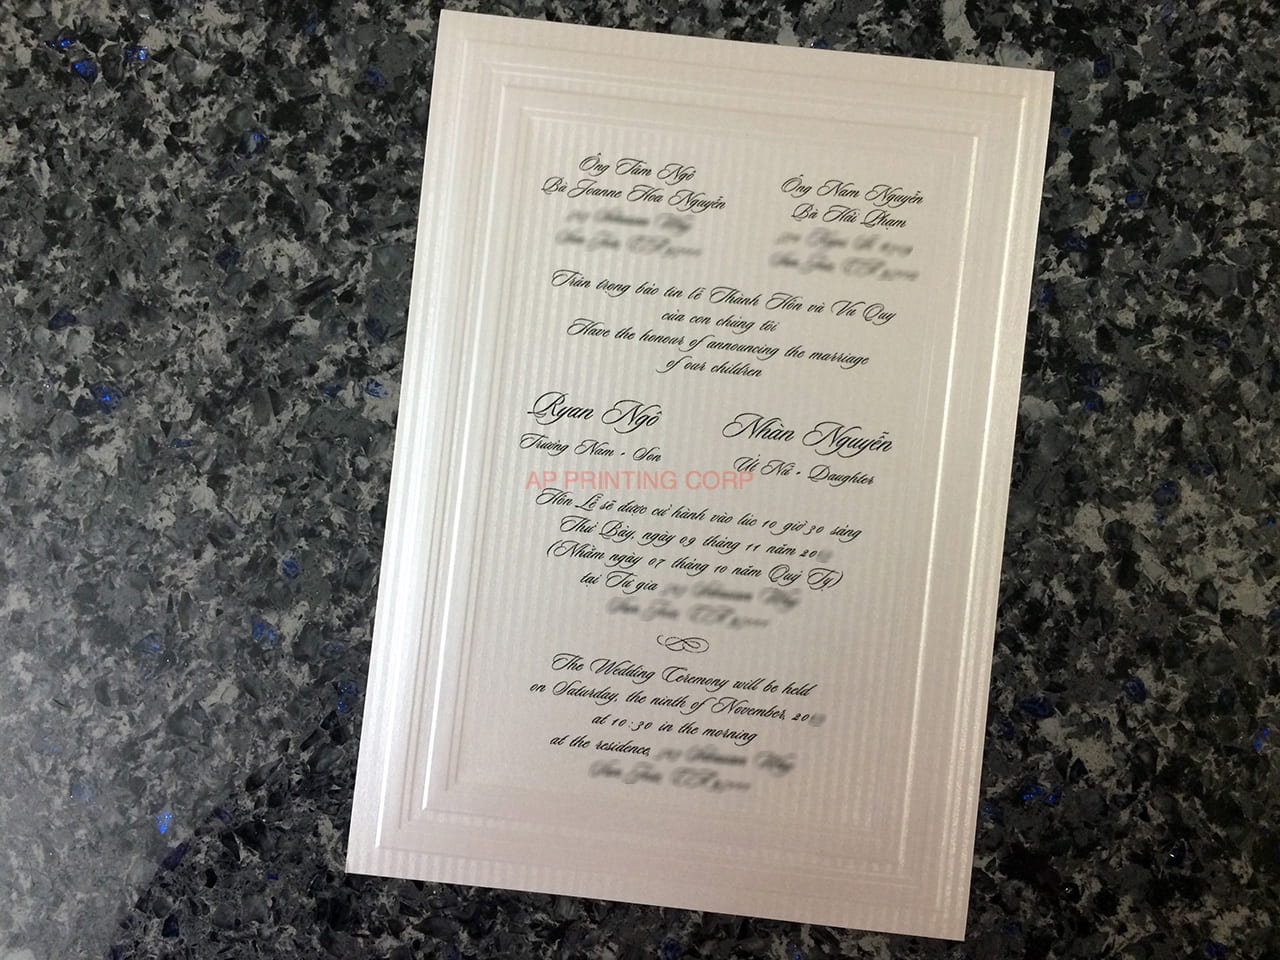 Ông Tâm Ngô
Bà Joanne Hoa Nguyễn
Ông Nam Nguyễn
Bà Hải Phạm
Trân trọng báo tin lễ Thành Hôn và Vu Quy
của con chúng tôi
Have the honour of announcing the marriage
of our children
Ryan Ngô
Trưởng Nam - Son
Nhàn Nguyễn
Út Nữ - Daughter
AP PRINTING CORP
Hôn Lễ sẽ được cử hành vào lúc 10 giờ 30 sáng
Thứ Bảy, ngày 09 tháng 11 năm 20
(Nhằm ngày 07 tháng 10 năm Quý Tỵ)
tại Tư gia
The Wedding Ceremony will be held
on Saturday, the ninth of November, 20
at 10:30 in the morning
at the residence,